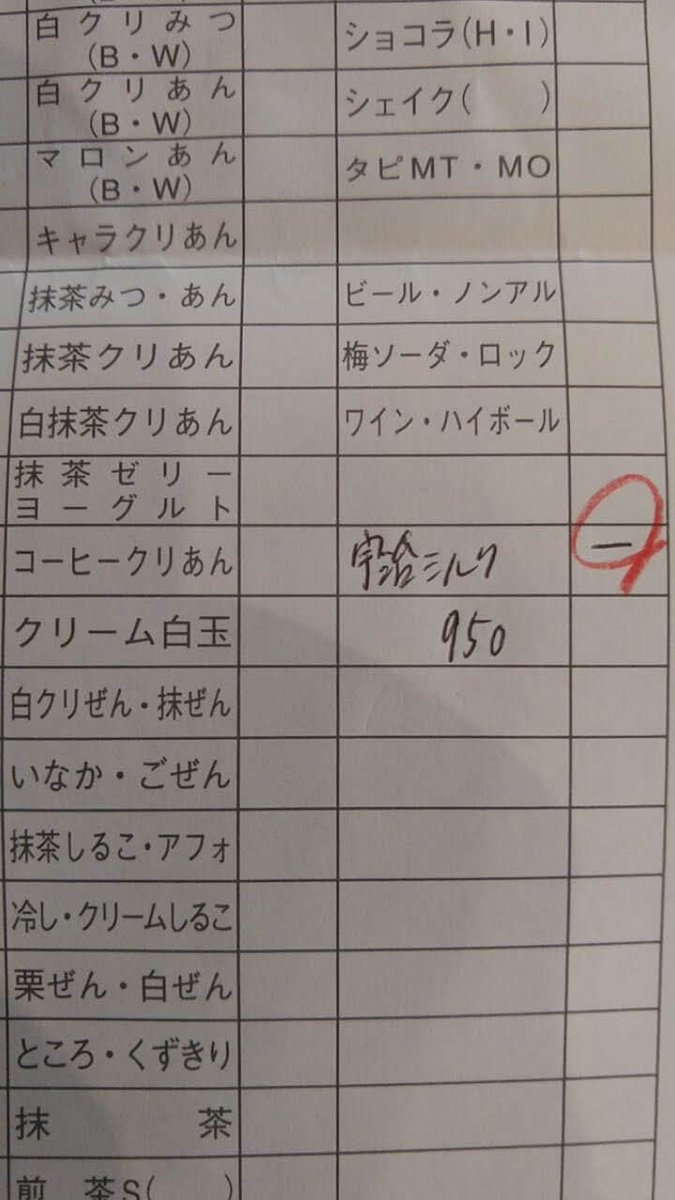 白クリみつ
(B・W)
ショコラ(H・I)
白クリあん
(B・W)
シェイク(　　)
マロンあん
(B・W)
タピMT・MO
キャラクリあん
抹茶みつ・あん
ビール・ノンアル
抹茶クリあん
梅ソーダ・ロック
白抹茶クリあん
ワイン・ハイボール
抹茶ゼリー
ヨーグルト
コーヒークリあん
宇治ミルク
一
クリーム白玉
950
白クリぜん・抹ぜん
いなか・ごぜん
抹茶しるこ・アフォ
冷し・クリームしるこ
栗ぜん・白ぜん
ところ・くずきり
抹茶
煎茶S(　　)